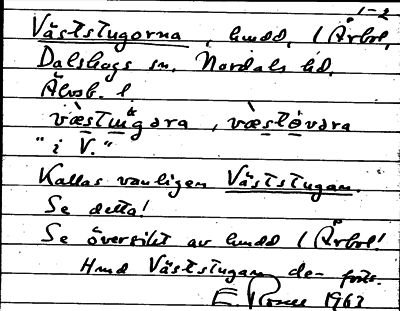 1-2
Väststugorna, hmdd. i Årbol,
Dalskogs sn, Nordals hd,
Älvsb. l
væstugara, væstövara
"i V."
Kallas vanligen Väststugan.
Se detta!
Se översikt av hmdd i Årbol!
Hmd Väststugan de-
E. 1963